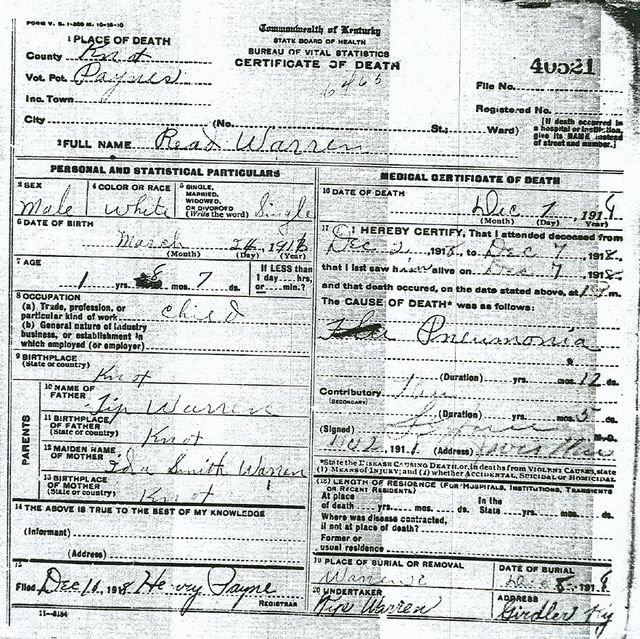 FORM V. S. 1-300 M. 10-10-10
Commonwealth of Kentucky
STATE BOARD OF HEALTH
BUREAU OF VITAL STATISTICS
CERTIFICATE OF DEATH
1 PLACE OF DEATH
County Knot
Vot. Pct. Paynes
Inc. Town
City (No. St.; Ward)
40521
File No.
Registered No.
[If death occurred in
a hospital or institution,
give its NAME instead
of street and number.]
2 FULL NAME Read Warren
PERSONAL AND STATISTICAL PARTICULARS
3 SEX
Male
4 COLOR OR RACE
White
5 SINGLE,
MARRIED,
WIDOWED,
OR DIVORCED
(Write the word) Single
6 DATE OF BIRTH
March 24, 1916
(Month) (Day) (Year)
7 AGE
1 yrs. 8 mos. 7 ds.
If LESS than
1 day.... hrs,
or.... min.?
8 OCCUPATION
(a) Trade, profession, or
particular kind of work child
(b) General nature of Industry
business, or establishment in
which employed (or employer)
9 BIRTHPLACE
(State or country) Knot
PARENTS
10 NAME OF
FATHER
Tip Warren
11 BIRTHPLACE
OF FATHER
(State or country) Knot
12 MAIDEN NAME
OF MOTHER
Eda Smith Warren
13 BIRTHPLACE
OF MOTHER
(State or country) Knot
14 THE ABOVE IS TRUE TO THE BEST OF MY KNOWLEDGE
(Informant)
(Address)
15
Filed Dec 10, 1918 Henry Payne
REGISTRAR
11-6184
MEDICAL CERTIFICATE OF DEATH
16 DATE OF DEATH
Dec 7, 1918
(Month) (Day) (Year)
17 I HEREBY CERTIFY, That I attended deceased from
Dec 2, 1918, to Dec 7, 1918,
that I last saw alive on Dec 7, 1918,
and that death occured, on the date stated above, at m.
The CAUSE OF DEATH* was as follows:
Pneumonia
(Duration) yrs. mos. 12 ds.
Contributory
(SECONDARY)
(Duration) yrs. mos. 5 ds.
(Signed) M. D.
191 (Address)
*State the DISEASE CAUSING DEATH, or, in deaths from VIOLENT CAUSES, state
(1) MEANS OF INJURY; and (2) whether ACCIDENTAL, SUICIDAL or HOMICIDAL
(18) LENGTH OF RESIDENCE (FOR HOSPITALS, INSTITUTIONS, TRANSIENTS
OR RECENT RESIDENTS)
At place
of death yrs. mos. ds.
In the
State yrs. mos. ds.
Where was disease contracted,
if not at place of death?
Former or
usual residence
19 PLACE OF BURIAL OR REMOVAL
DATE OF BURIAL
Dec 8, 1918
20 UNDERTAKER
Tip Warren
ADDRESS
Girdler Ky